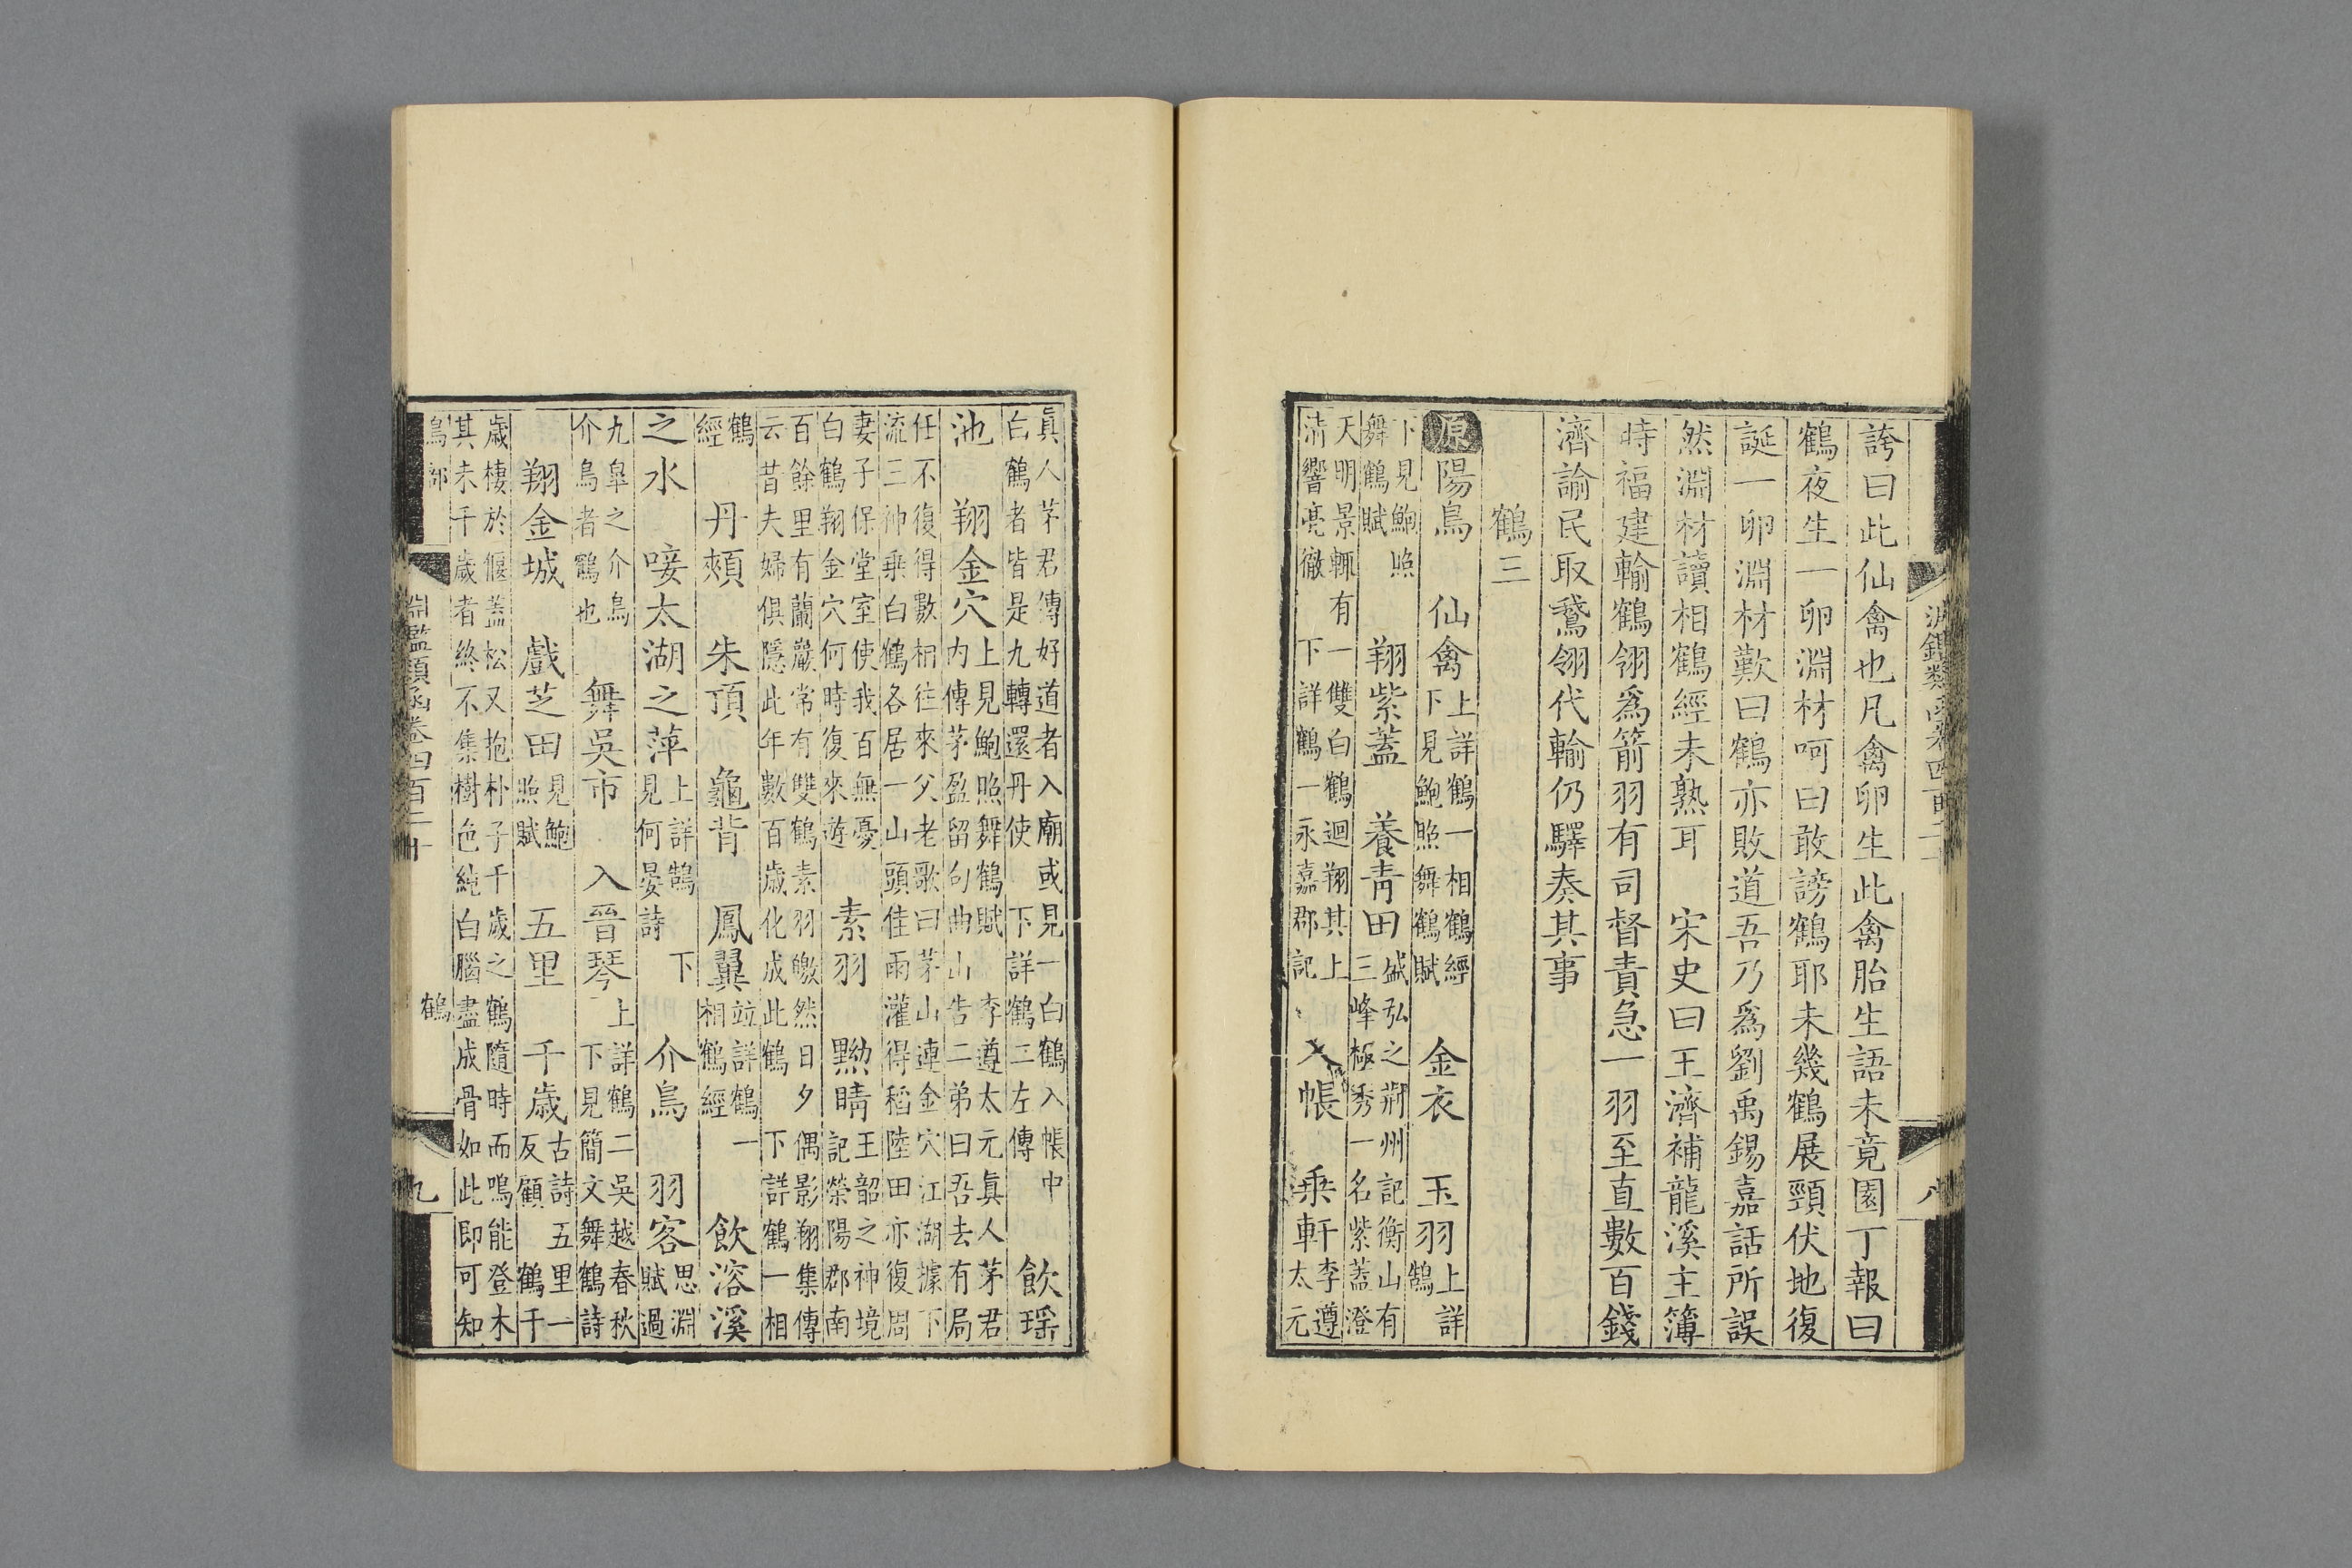 淵鑑類函卷四百二十
八
誇曰此仙禽也凡禽卵生此禽胎生語未竟園丁報曰
鶴夜生一卵淵材呵曰敢謗鶴耶未幾鶴展頸伏地復
誕一卵淵材歎曰鶴亦敗道吾乃爲劉禹錫嘉話所誤
然淵材讀相鶴經未熟耳　宋史曰王濟補龍溪主簿
時福建輸鶴翎爲箭羽有司督責急一羽至直數百錢
濟諭民取鵞翎代輸仍驛奏其事
鶴三
原陽鳥　仙禽上詳鶴一相鶴經下見鮑照舞鶴賦　金衣　玉羽上詳鵠
下見鮑照舞鶴賦　翔紫蓋　養青田盛弘之荆州記衡山有三峰極秀一名紫蓋澄
天明景輒有一雙白鶴迴翔其上清響亮徹　下詳鶴一永嘉郡記　入帳　乘軒李遵太元
眞人茅君傳好道者入廟或見一白鶴入帳中白鶴者皆是九轉還丹使　下詳鶴二左傳　飲瑶
池　翔金穴上見鮑照舞鶴賦　李遵太元眞人茅君内傳茅盈留句曲山告二弟曰吾去有局
任不復得數相往來父老歌曰茅山連金穴江湖據下流三神乘白鶴各居一山頭佳雨灌得稻陸田亦復周
妻子保堂室使我百無憂白鶴翔金穴何時復來遊　素羽　黝睛王韶之神境記榮陽郡南
百餘里有蘭巖常有雙鶴素羽皦然日夕偶影翔集傳云昔夫婦俱隱此年數百歲化成此鶴　下詳鶴一相
鶴經　丹頰　朱頂　龜背　鳳翼竝詳鶴一相鶴經　飲溶溪
之水　唼太湖之萍上詳鵠　下見何晏詩　介鳥　羽客思淵賦過
九臯之介鳥介鳥者鶴也　舞吳市　入晉琴上詳鶴二吳越春秋下見簡文舞鶴詩
翔金城　戲芝田見鮑照賦　五里　千歲古詩五里一反顧　鶴千
歲棲於偃蓋松又抱朴子千歲之鶴隨時而鳴能登木其未千歲者終不集樹色純白腦盡成骨如此即可知
淵鑑類函卷四百二十
鳥部
鶴
九